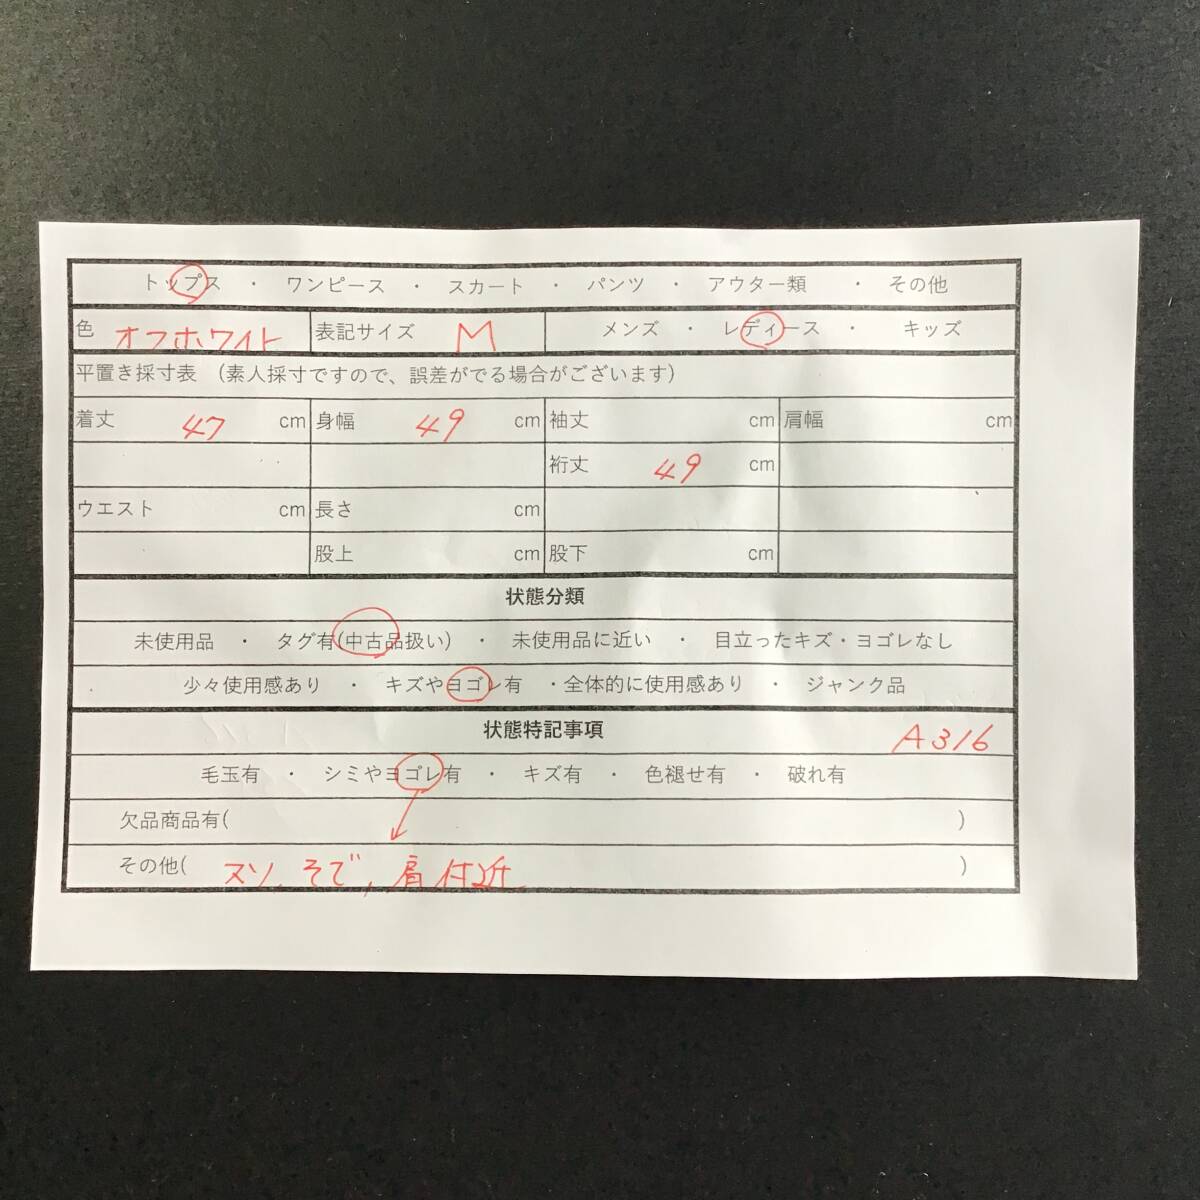 トップス ・ ワンピース ・ スカート ・ パンツ ・ アウター類 ・ その他
色 オフホワイト 表記サイズ M メンズ ・ レディース ・ キッズ
平置き採寸表 (素人採寸ですので、誤差がでる場合がございます)
着丈 47 cm 身幅 49 cm 袖丈 cm 肩幅 cm
裄丈 49 cm
ウエスト cm 長さ cm
股上 cm 股下 cm
状態分類
未使用品 ・ タグ有(中古品扱い) ・ 未使用品に近い ・ 目立ったキズ・ヨゴレなし
少々使用感あり ・ キズやヨゴレ有 ・全体的に使用感あり ・ ジャンク品
状態特記事項 A316
毛玉有 ・ シミやヨゴレ有 ・ キズ有 ・ 色褪せ有 ・ 破れ有
欠品商品有( )
その他( スソ、そで、肩付近 )